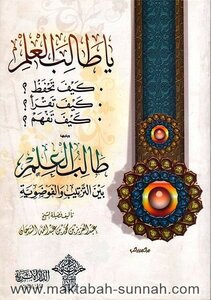 يا طالب العلم
كيف تحفظ ؟
كيف تقرأ ؟
كيف تفهم ؟
طالب العلم
بين الترتيب والفوضوية
تأليف فضيلة الشيخ
عبد العزيز بن محمد بن عبد الله السدحان
www.maktabah-sunnah.com